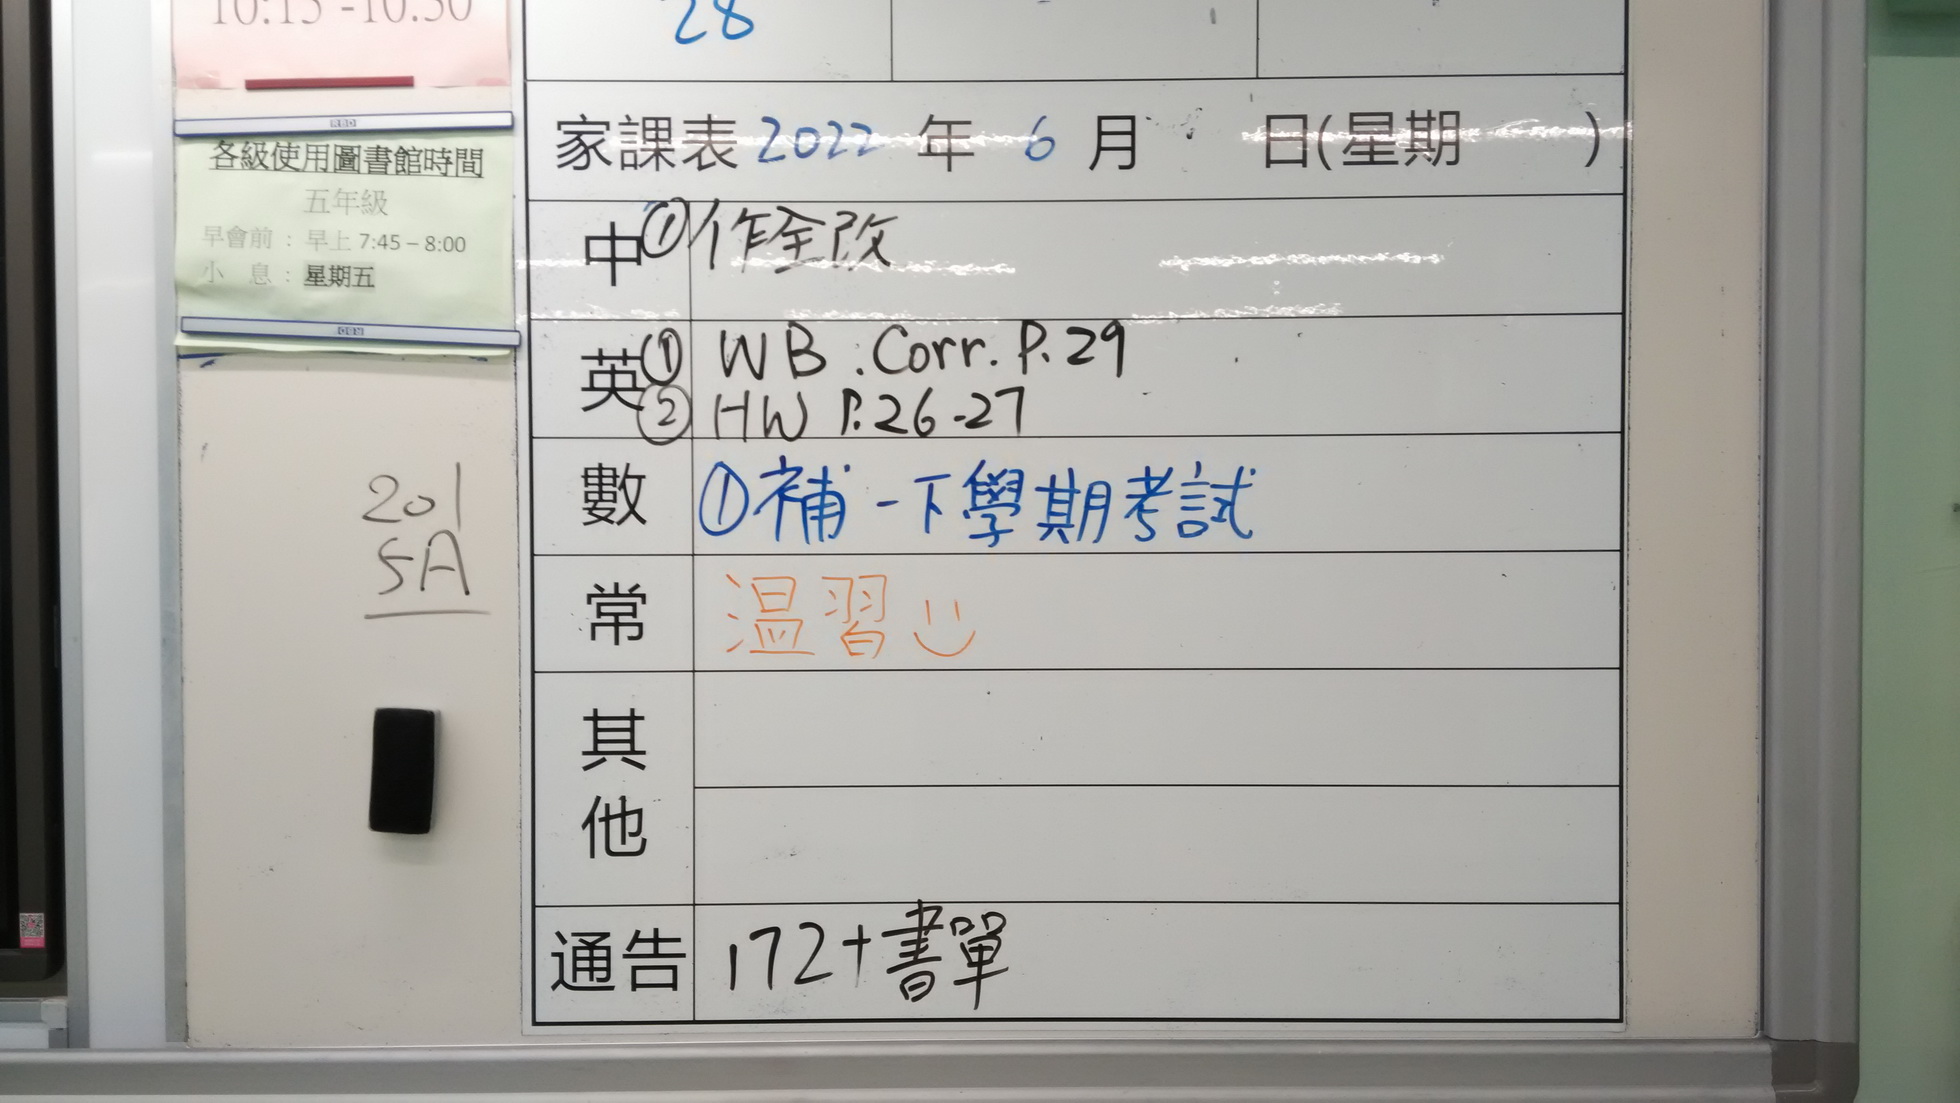 10:15 -10:30
各級使用圖書館時間
五年級
早會前 : 早上 7:45 – 8:00
小 息 : 星期五
201
5A
28
家課表 2022 年 6 月 日(星期 )
中 ① 作全改
英 ① WB . Corr. P. 29
② HW P.26-27
數 ① 補 - 下學期考試
常 温習
其他
通告 172+書單